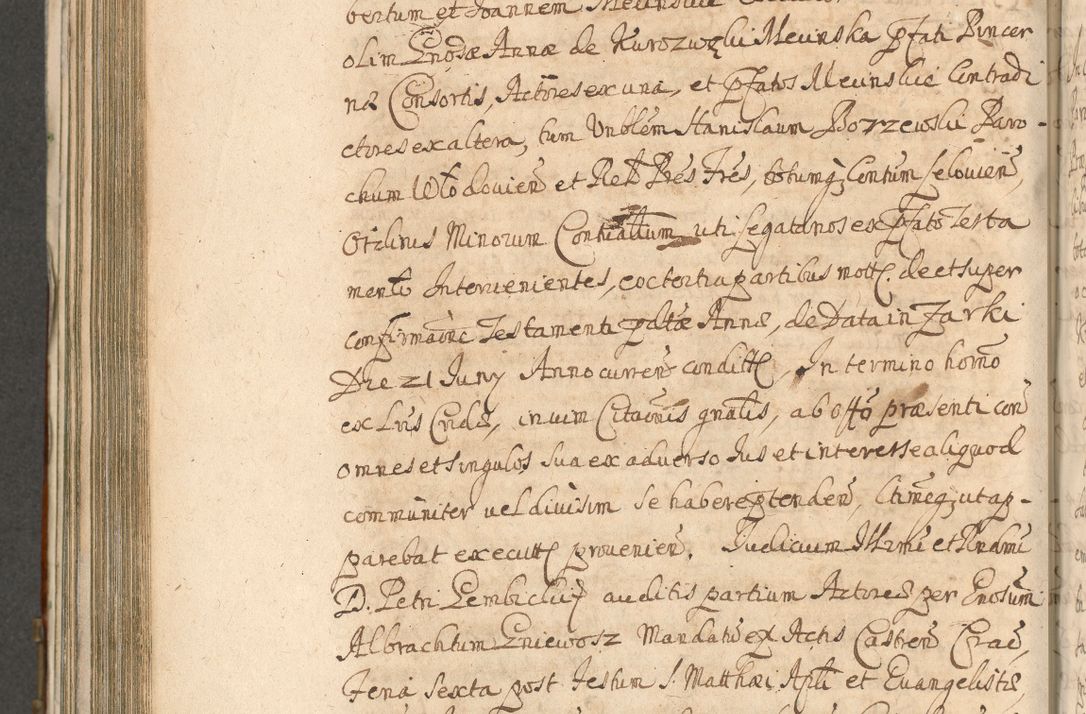 bertum et Joannem Mecinskie
olim Gnosae Annae de Kurozwęki Mecinska pfati Pincer
nae Consortis, Actores ex una, et pfatos Mecinskie Contradi
ctores ex altera, tum Vnblem Stanislaum Borzewski Paro-
chum Wlodovien et Rel Pres Fres, totumq Contum Selovien,
Ordinis Minorum Contualium uti Legatarios ex pfato Testa
mento Intervenientes, eoc tertia partibus mott. de et super
confirmaone Testamenti pdtae Annae, de Data in Zarki
Die 21 Juny Anno curren conditt, In termino horno
ex Lris Cridae, in vim Citaonis gnalis, ab offo praesenti con
omnes et singulos sua ex adverso Jus et interesse aliquod
communiter vel divisim se habere ptenden, Ctimeq, ut ap-
parebat executt provenien. Judicium Illrmi et Rndmi
D. Petri Gembicky auditis partium Actores per Gnosum
Albrachtum Gniewosz Mandato ex Actis Castren Crac,
Feria Sexta post Festum S. Matthaei Apli et Evangelistae,